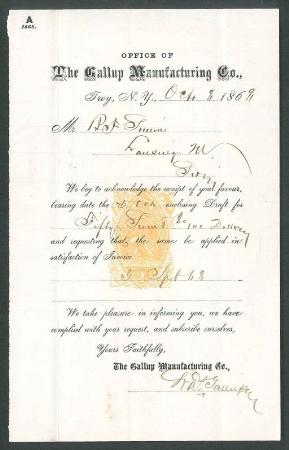 A
1868.
OFFICE OF
The Gallup Manufacturing Co.,
Troy, N. Y., Oct 8 1868
Mr. B F
Lansing
We beg to acknowledge the receipt of your favour,
bearing date the 5 Oct enclosing Draft for
Fifty 100 Dollars
and requesting that the same be applied in
satisfaction of Invoice
We take pleasure in informing you, we have
complied with your request, and subscribe ourselves,
Yours Faithfully,
The Gallup Manufacturing Co.,